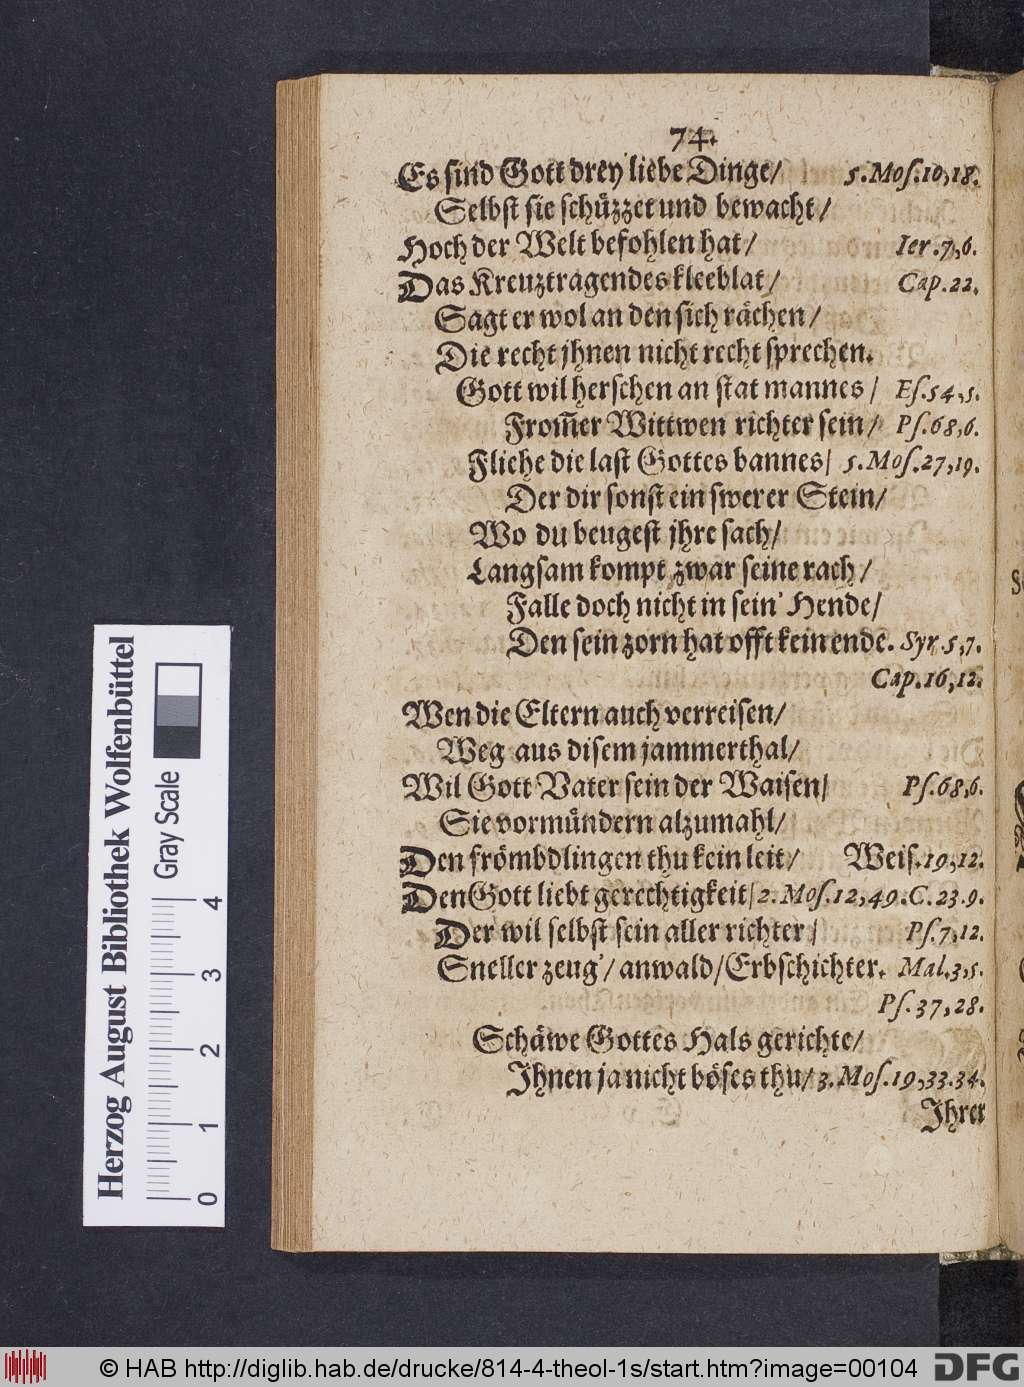 74.
Es sind Gott drey liebe Dinge/ 5. Mos. 10, 18.
Selbst sie schüzzet und bewacht/
Hoch der Welt befohlen hat/ Ier. 7, 6.
Das Kreuztragendes kleeblat/ Cap. 22.
Sagt er wol an den sich rächen/
Die recht jhnen nicht recht sprechen.
Gott wil herschen an stat mannes/ Es. 54, 5.
From̃er Wittwen richter sein/ Ps. 68, 6.
Fliehe die last Gottes bannes/ 5. Mos. 27, 19.
Der dir sonst ein swerer Stein/
Wo du beugest jhre sach/
Langsam kompt zwar seine rach/
Falle doch nicht in sein' Hende/
Den sein zorn hat offt kein ende. Syr. 5, 7.
Cap. 16, 12.
Wen die Eltern auch verreisen/
Weg aus disem jammerthal/
Wil Gott Vater sein der Waisen/ Ps. 68, 6.
Sie vormündern alzumahl/
Den frömbdlingen thu kein leit/ Weis. 19, 12.
Den Gott liebt gerechtigkeit/ 2. Mos. 12, 49. C. 23. 9.
Der wil selbst sein aller richter/ Ps. 7, 12.
Sneller zeug'/ anwald/ Erbschichter. Mal. 3, 5.
Ps. 37, 28.
Schäwe Gottes Hals gerichte/
Ihnen ja nicht böses thu/ 3. Mos. 19, 33. 34.
Ihrer
Herzog August Bibliothek Wolfenbüttel
Gray Scale
0 1 2 3 4
© HAB http://diglib.hab.de/drucke/814-4-theol-1s/start.htm?image=00104
DFG